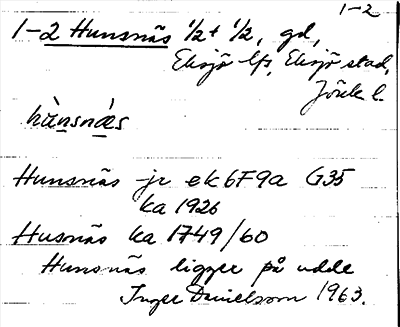 1-2
1-2 Hunsnäs 1/2 + 1/2, gd,
Eksjö lfs, Eksjö stad,
Jönk l.
hùnsnæ̀s
Hunsnäs jr ek 6F9a G35
ka 1926
Husnäs ka 1749/60
Hunsnäs ligger på udde
Inger Danielsson 1963.